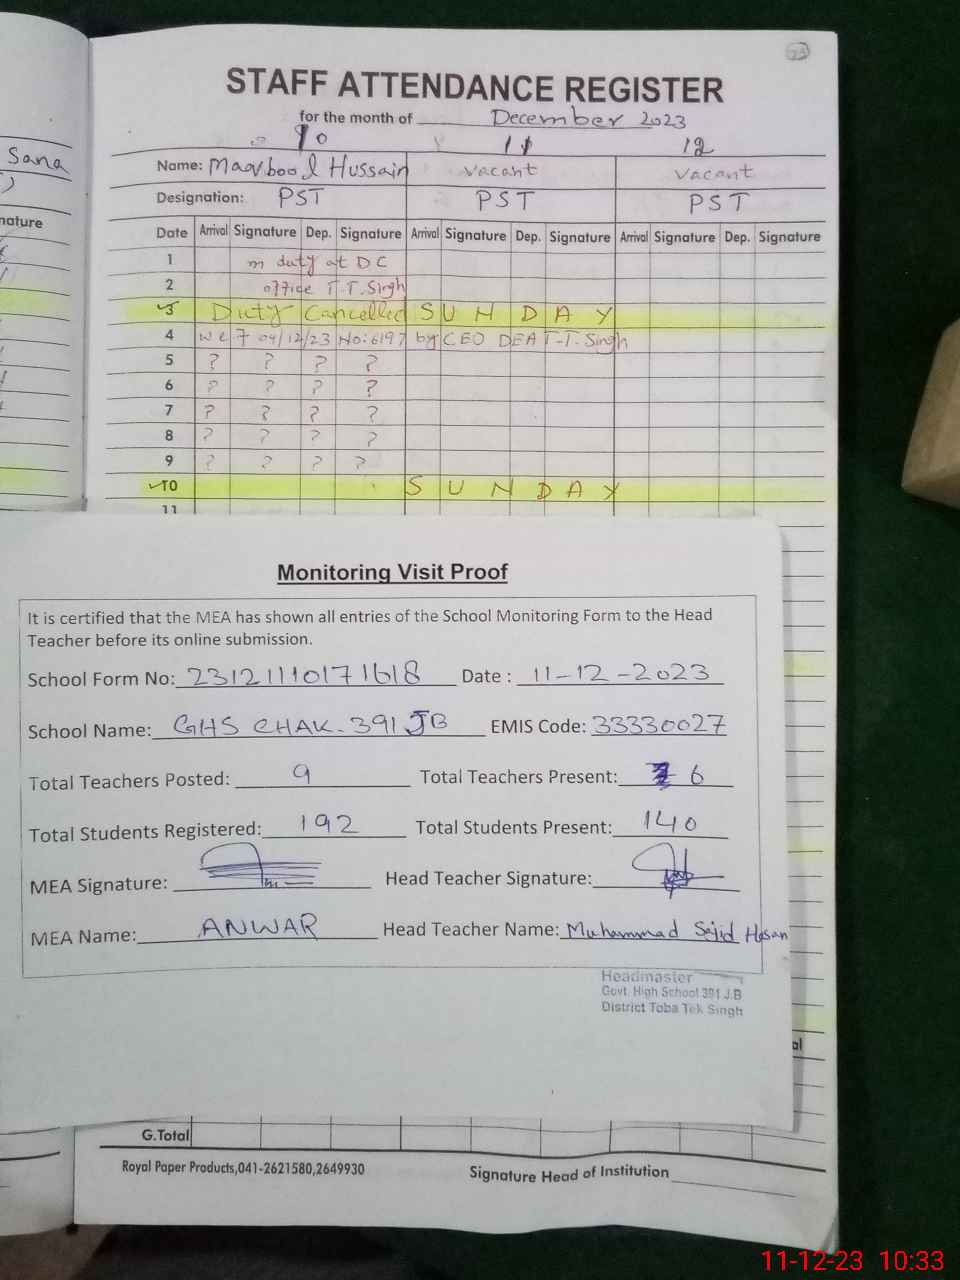 23
STAFF ATTENDANCE REGISTER
for the month of December 2023
10 11 12
Sana
Name: Maqbool Hussain vacant vacant
Designation: PST PST PST
nature
Date Arrival Signature Dep. Signature Arrival Signature Dep. Signature Arrival Signature Dep. Signature
1 m duty at DC
2 office T.T.Singh
3 Duty Cancelled S U N D A Y
4 w e f 04/12/23 No:6197 by CEO DEA T.T.Singh
5 ? ? ? ?
6 ? ? ? ?
7 ? ? ? ?
8 ? ? ? ?
9 ? ? ? ?
10 S U N D A Y
11
Monitoring Visit Proof
It is certified that the MEA has shown all entries of the School Monitoring Form to the Head
Teacher before its online submission.
School Form No: 23121110171618 Date : 11-12-2023
School Name: GHS CHAK. 391 JB EMIS Code: 33330027
Total Teachers Posted: 9 Total Teachers Present: 6
Total Students Registered: 192 Total Students Present: 140
MEA Signature: Head Teacher Signature:
MEA Name: ANWAR Head Teacher Name: Muhammad Sajid Hasan
Headmaster
Govt. High School 391 J.B
District Toba Tek Singh
al
G.Total
Royal Paper Products,041-2621580,2649930 Signature Head of Institution
11-12-23 10:33